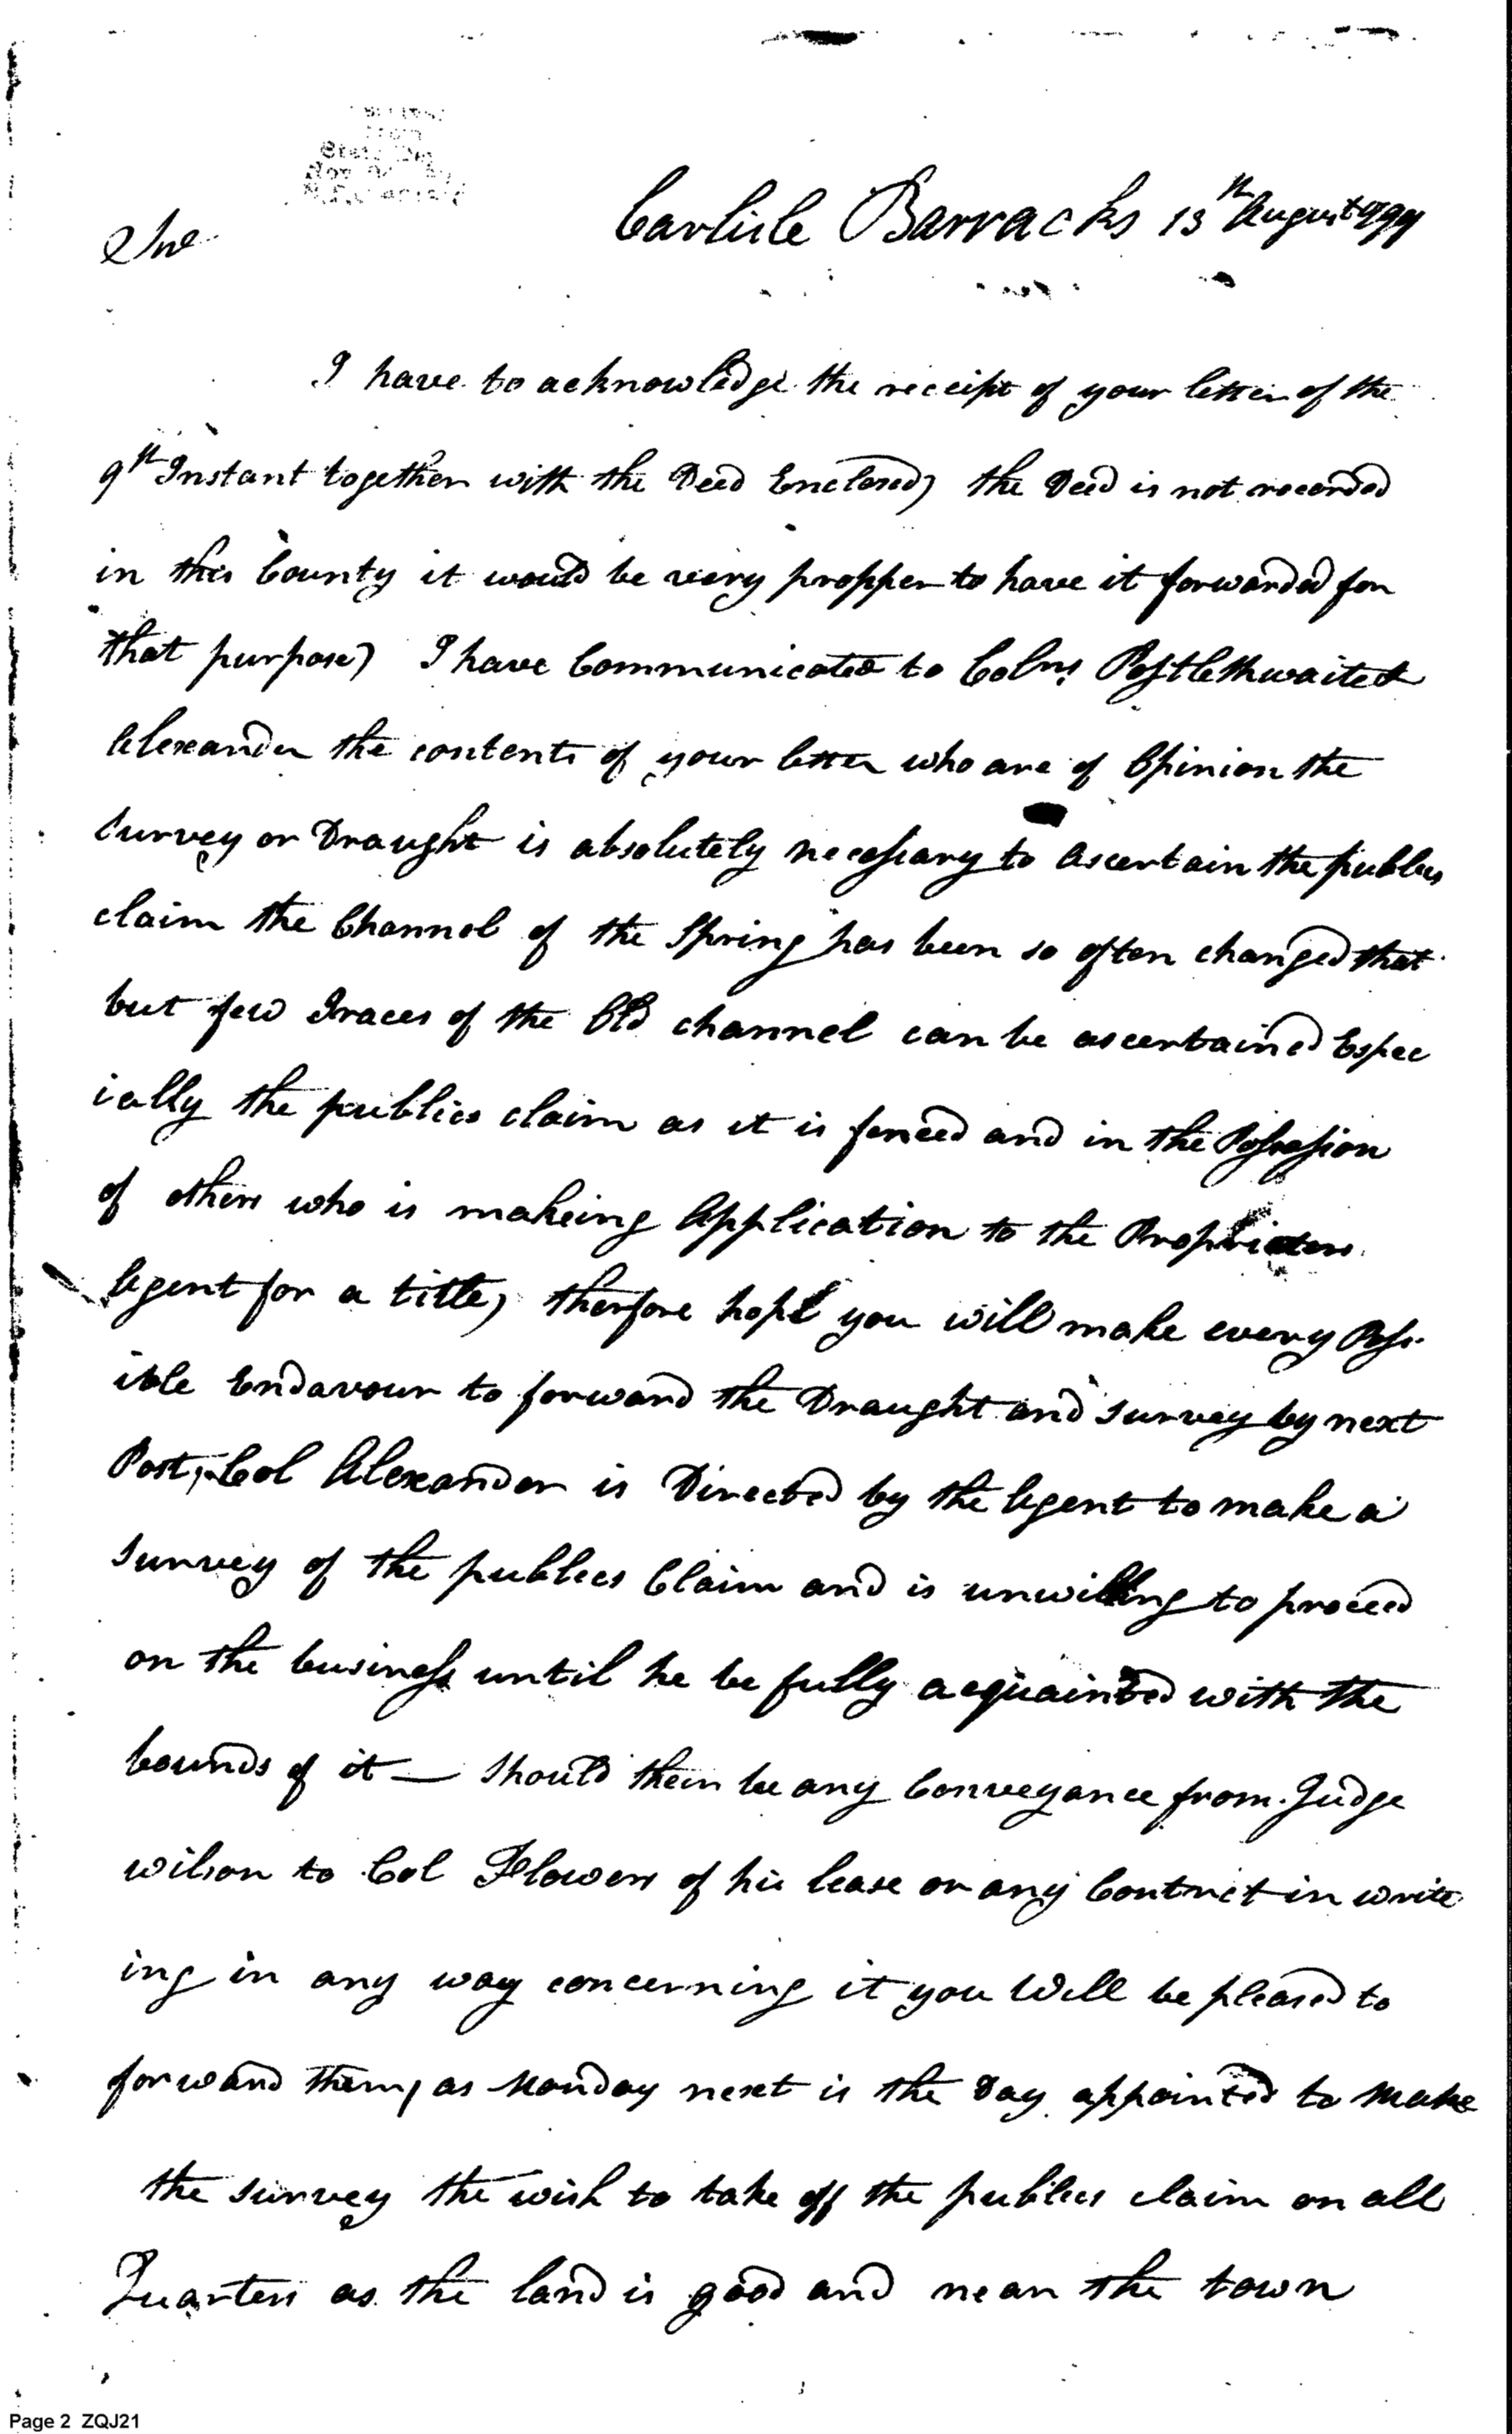 Carlisle Barracks 13th August 1799
Sir
I have to acknowledge the receipt of your letter of the
9th Instant together with the Deed Enclosed, the Deed is not recorded
in this County it would be very propper to have it forwarded for
that purpose, I have Communicated to Colns. Postlethwaite &
Alexander the contents of your letter who are of Opinion the
Survey or Draught is absolutely necessary to Ascertain the publics
claim the Channel of the Spring has been so often changed that
but few Traces of the Old channel can be ascertained Espec
ially the publics claim as it is fenced and in the Possession
of others who is makeing Application to the Proprietors
Agent for a title, therfore hope you will make every Poss-
ible Endavour to forward the Draught and survey by next
Post, Col Alexander is Directed by the Agent to make a
Survey of the publics Claim and is unwilling to proceed
on the business until he be fully acquainted with the
bounds of it — Should their be any Conveyance from Judge
Wilson to Col Flowers of his lease or any Contrict in write
ing in any way concerning it you Will be pleased to
forward them, as Monday next is the Day appointed to Make
the survey the wish to take off the publics claim on all
Quarters as the land is good and near the town
Page 2 ZQJ21